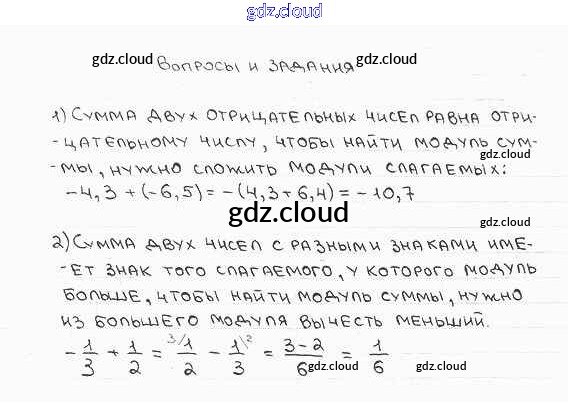 gdz.cloud
gdz.cloud вопросы и задания gdz.cloud
1) Сумма двух отрицательных чисел равна отри-
-цательному числу, чтобы найти модуль сум-
gdz.cloud
-мы, нужно сложить модули слагаемых:
-4,3 + (-6,5) = -(4,3 + 6,4) = -10,7
gdz.cloud gdz.cloud
2) Сумма двух чисел с разными знаками име-
-ет знак того слагаемого, у которого модуль
больше, чтобы найти модуль суммы, нужно
из большего модуля вычесть меньший.
gdz.cloud
-1/3 + 1/2 = 3/1/2 - 1\2/3 = 3-2/6 = 1/6
gdz.cloud gdz.cloud